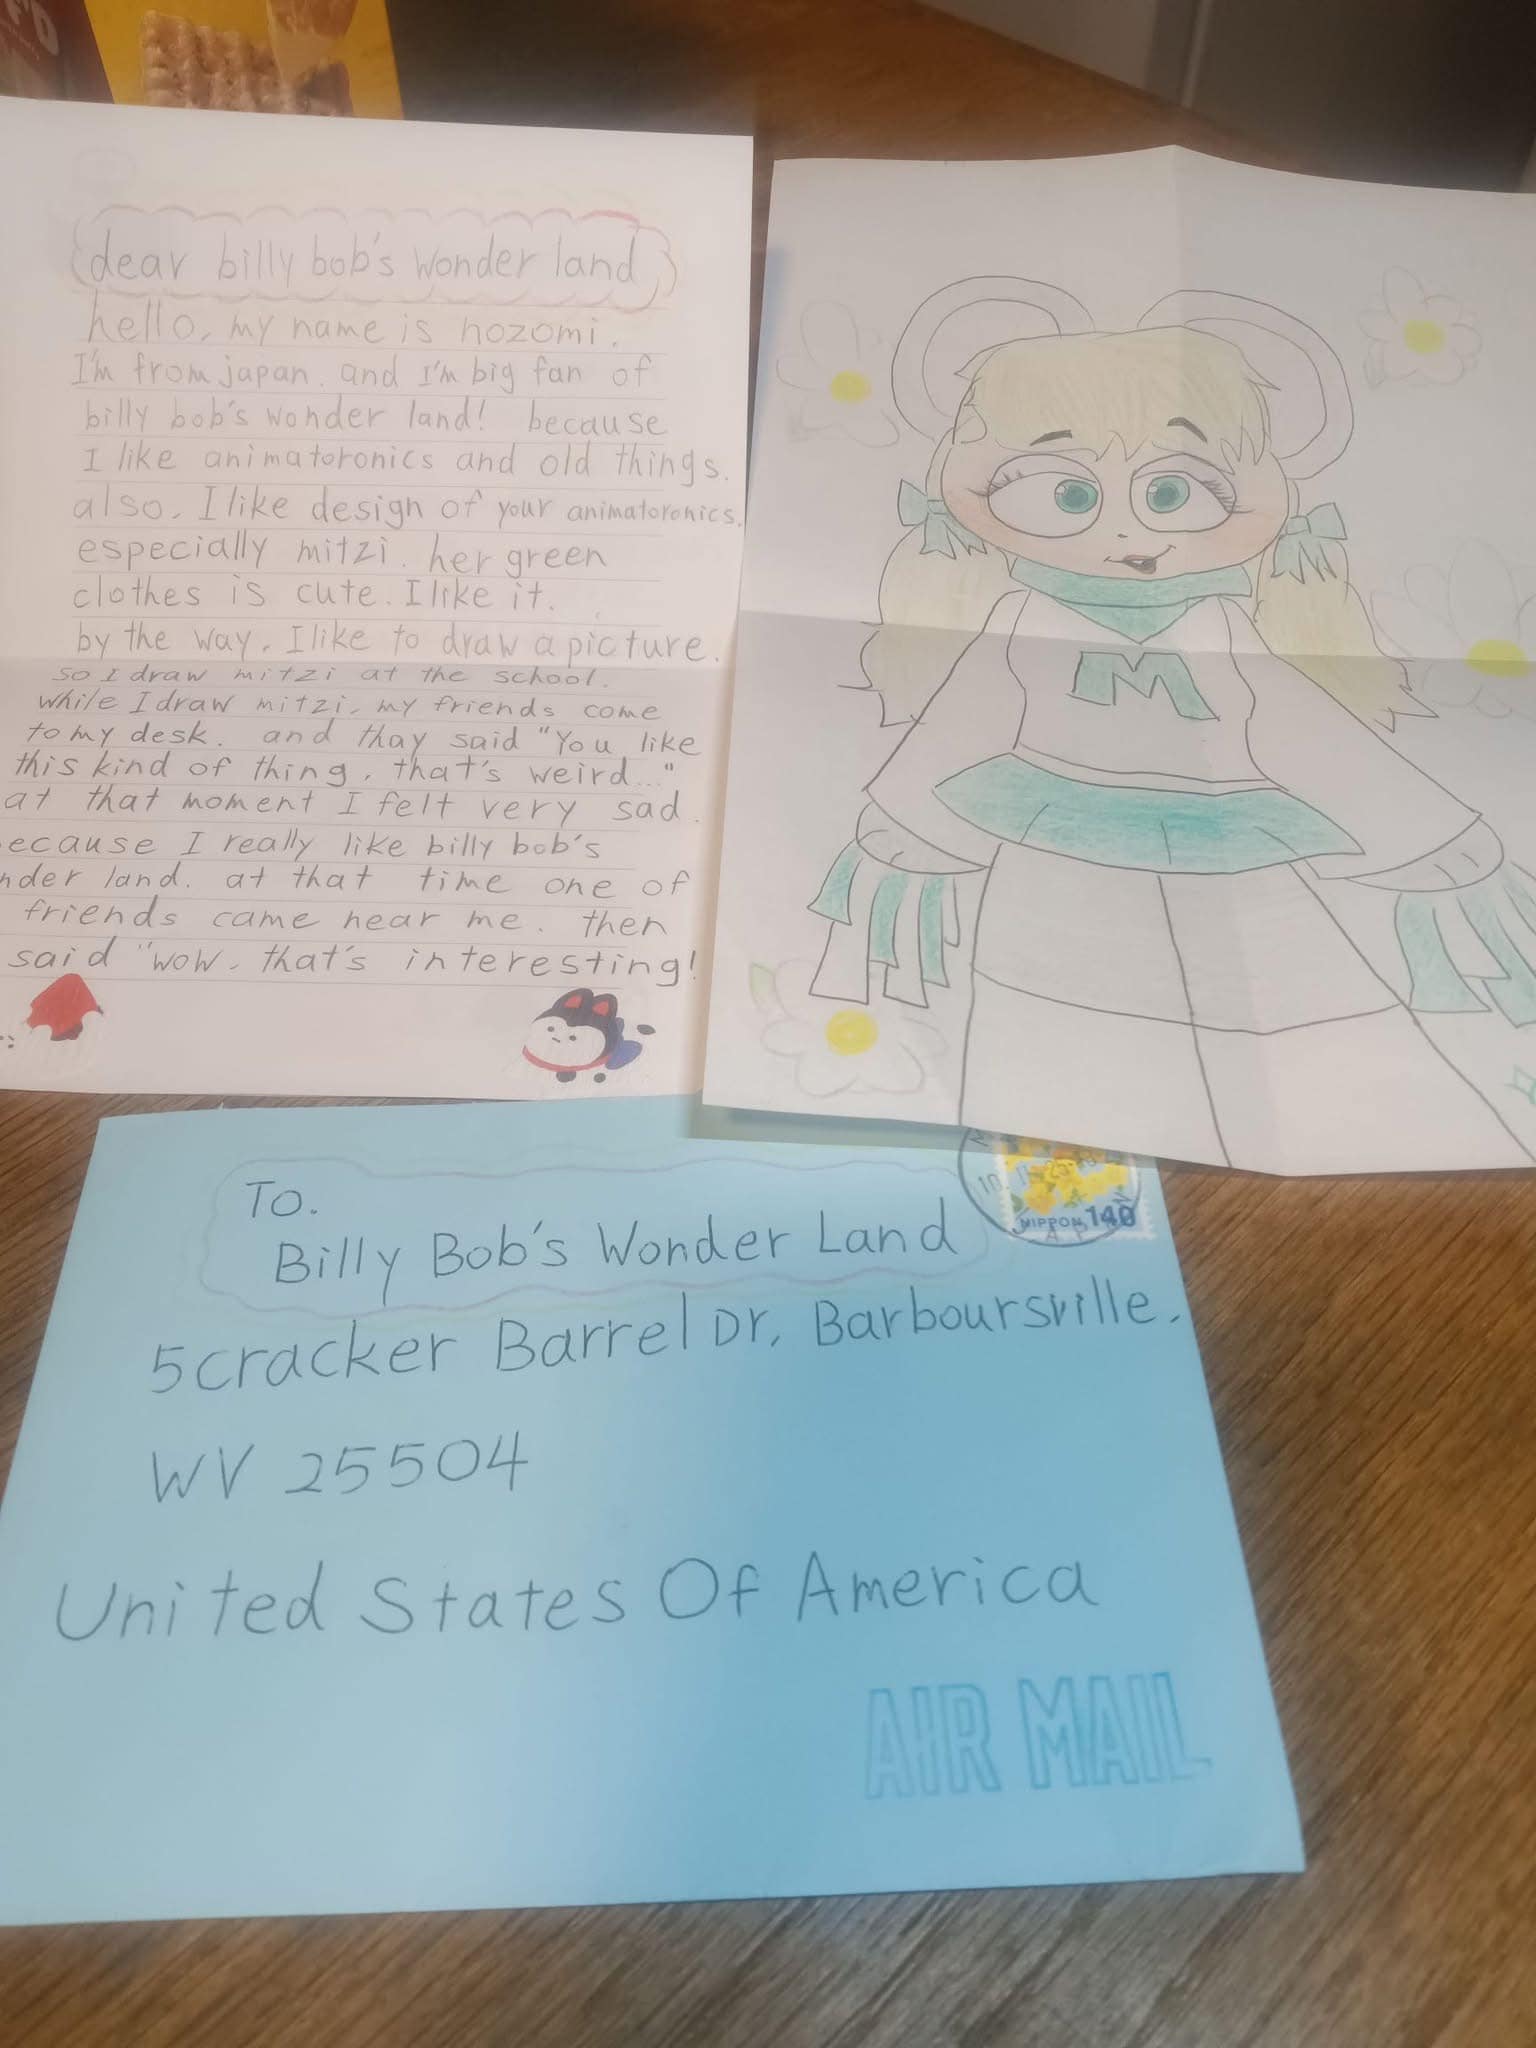 dear billy bob's wonder land
hello, my name is nozomi.
I'm from japan. and I'm big fan of
billy bob's wonder land! because
I like animatoronics and old things.
also, I like design of your animatoronics.
especially mitzi. her green
clothes is cute. I like it.
by the way, I like to draw a picture.
so I draw mitzi at the school.
while I draw mitzi, my friends come
to my desk. and thay said "You like
this kind of thing, that's weird..."
at that moment I felt very sad.
ecause I really like billy bob's
nder land. at that time one of
friends came near me. then
said "wow, that's interesting!
M
NIPPON 140
TO.
Billy Bob's Wonder Land
5cracker Barrel Dr, Barboursville,
WV 25504
United States Of America
AIR MAIL